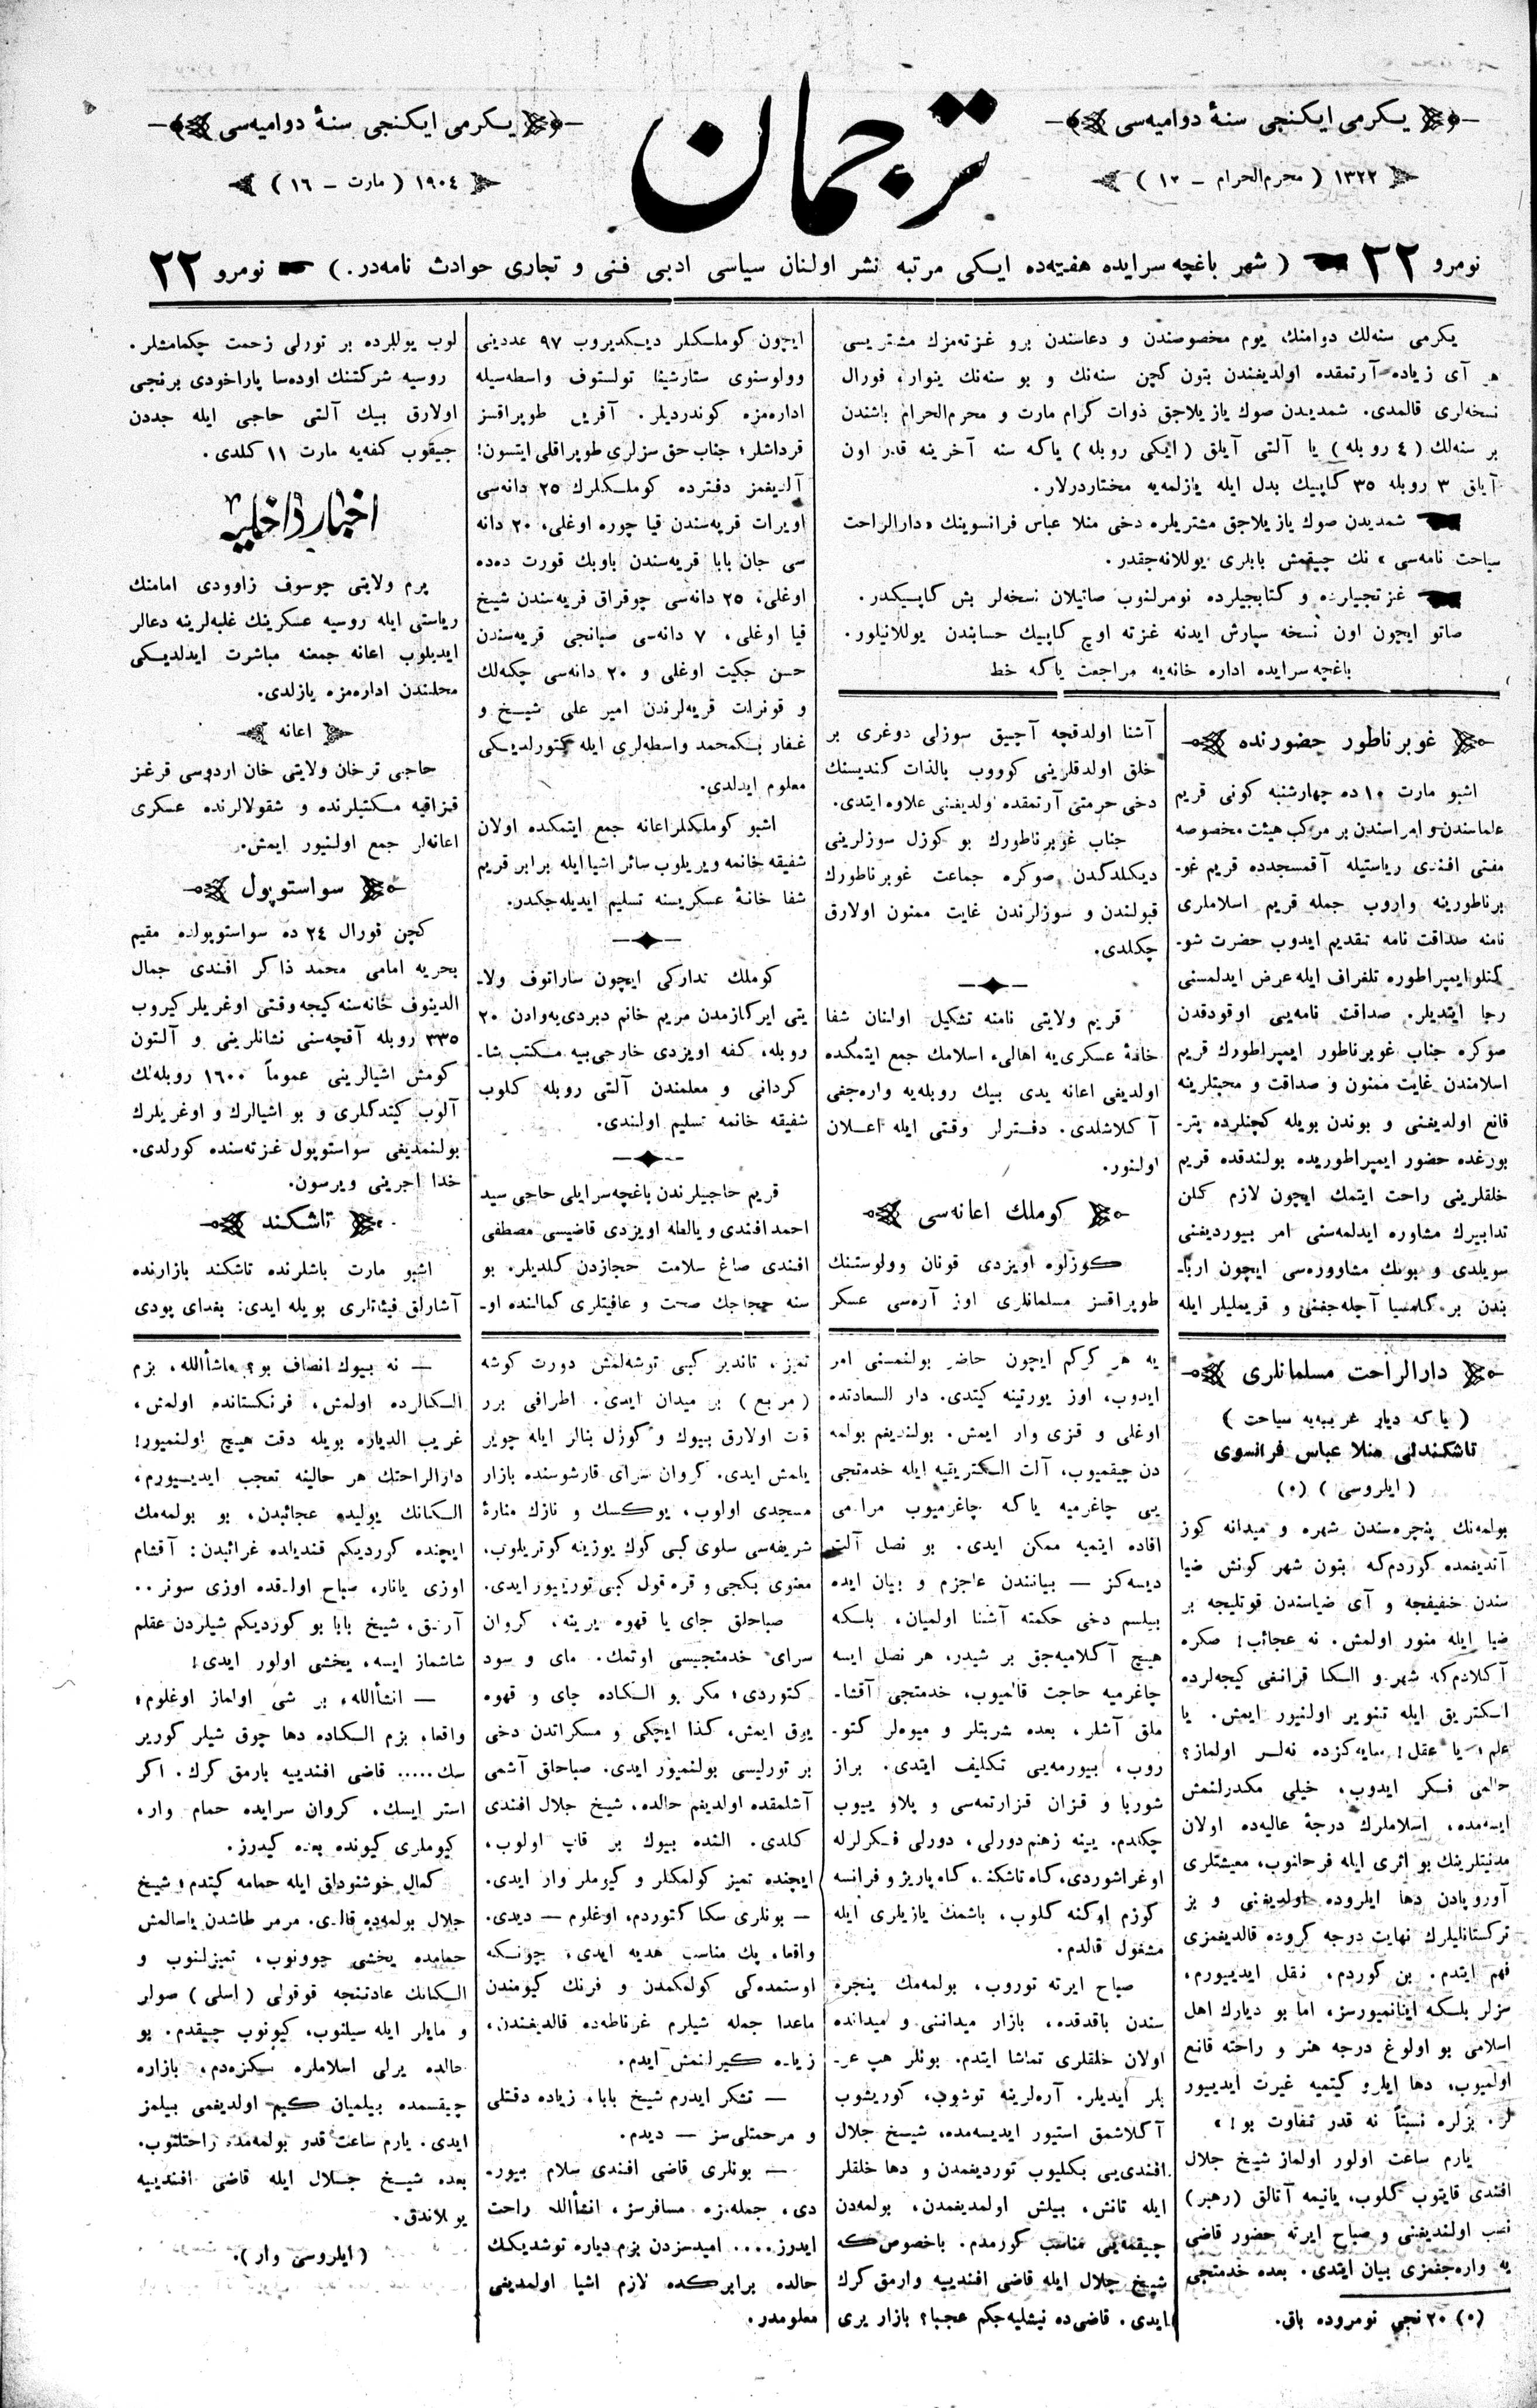 یكرمی ایكنجی سنهٔ دوامیه‌سی
ترجمان
یكرمی ایكنجی سنهٔ دوامیه‌سی
١٣٢٢ ( محرم‌الحرام – ١٢ )
١٩٠٤ ( مارت – ١٦ )
نومرو ٢٢ ( شهر باغچه سرایده هفته‌ده ایكی مرتبه نشر اولنان سیاسی ادبی فنی و تجاری حوادث نامه‌در. ) نومرو ٢٢
یكرمی سنه‌لك دوامنك، یوم مخصوصندن و دعاسندن برو غزته‌مزك مشتریسی
هر آی زیاده آرتمقده اولدیغندن بتون كچن سنه‌نك و بو سنه‌نك ینوار، فورال
نسخه‌لری قالمدی. شمدیدن صوك یازیلاجق ذوات كرام مارت و محرم‌الحرام باشندن
بر سنه‌لك ( ٤ روبله ) یا آلتی آیلق ( ایكی روبله ) یاكه سنه آخرینه قدر اون
آیلق ٣ روبله ٣٥ كاپیك بدل ایله یازلمه‌یه مختاردرلار.
شمدیدن صوك یازیلاجق مشتریلره دخی منلا عباس فرانسوینك «دارالراحت
سیاحت نامه‌سی» نك چیقمش بابلری یوللانه‌جقدر.
غزتجیلرده و كتابجیلرده نومرلنوب صاتیلان نسخه‌لر بش كاپیكدر.
صاتو ایچون اون نسخه سپارش ایدنه غزته اوچ كاپیك حسابندن یوللانیلور.
باغچه سرایده اداره خانه‌یه مراجعت یاكه خط
غوبرناطور حضورنده
اشبو مارت ١٠ ده چهارشنبه كونی قریم
علماسندن و امراسندن بر مركب هیئت مخصوصه
مفتی افندی ریاستیله آقمسجدده قریم غو-
برناطورینه واروب جمله قریم اسلاملری
نامنه صداقت نامه تقدیم ایدوب حضرت شو-
كتلو ایمپراطوره تلغراف ایله عرض ایدلمسنی
رجا ایتدیلر. صداقت نامه‌یی اوقودقدن
صوكره جناب غوبرناطور ایمپراطورك قریم
اسلامندن غایت ممنون و صداقت و محبتلرینه
قانع اولدیغنی و بوندن بویله كچنلرده پتر-
بورغده حضور ایمپراطوریده بولندقده قریم
خلقلرینی راحت ایتمك ایچون لازم كلن
تدابیرك مشاوره ایدلمه‌سنی امر بیوردیغنی
سویلدی و بونك مشاووره‌سی ایچون اربا-
بندن بر كامسیا آچله‌جغنی و قریملیلر ایله
آشنا اولدقچه آچیق سوزلی دوغری بر
خلق اولدقلرینی كوروب بالذات كندیسنك
دخی حرمتی آرتمقده اولدیغنی علاوه ایتدی.
جناب غوبرناطورك بو كوزل سوزلرینی
دیكلدكدن صوكره جماعت غوبرناطورك
قبولندن و سوزلرندن غایت ممنون اولارق
چكلدی.
قریم ولایتی نامنه تشكیل اولنان شفا
خانهٔ عسكری‌یه اهالیء اسلامك جمع ایتمكده
اولدیغی اعانه یدی بیك روبله‌یه واره‌جغی
آكلاشلدی. دفترلر وقتی ایله اعلان
اولنور.
كوملك اعانه‌سی
كوزلوه اویزدی قونان وولوستنك
طوپراقسز مسلمانلری اوز آره‌سی عسكر
ایچون كوملكلر دیكدیروب ٩٧ عددینی
وولوسنوی ستارشینا تولستوف واسطه‌سیله
اداره‌مزه كوندردیلر. آفرین طوپراقسز
قرداشلر؛ جناب حق سزلری طوپراقلی ایتسون!
آلدیغمز دفترده كوملكلرك ٢٥ دانه‌سی
اویرات قریه‌سندن قیا چوره اوغلی، ٢٠ دانه
سی جان بابا قریه‌سندن باوبك قورت ده‌ده
اوغلی، ٢٥ دانه‌سی چوقراق قریه‌سندن شیخ
قیا اوغلی، ٧ دانه‌سی صپانجی قریه‌سندن
حسن جكیت اوغلی و ٢٠ دانه‌سی چكه‌لك
و قونرات قریه‌لرندن امیر علی شیخ و
غفار بكمحمد واسطه‌لری ایله كتورلدیكی
معلوم ایدلدی.
اشبو كوملكلر اعانه جمع ایتمكده اولان
شفیقه خانمه ویریلوب سائر اشیا ایله برابر قریم
شفا خانهٔ عسكریسنه تسلیم ایدیله‌جكدر.
كوملك تداركی ایچون ساراتوف ولا-
یتی ایركازمدن مریم خانم دبردی‌یه‌وادن ٢٠
روبله، كفه اویزدی خارجی‌بیه مكتب شا-
كردانی و معلمندن آلتی روبله كلوب
شفیقه خانمه تسلیم اولندی.
قریم حاجیلرندن باغچه‌سرایلی حاجی سید
احمد افندی و یالطه اویزدی قاضیسی مصطفی
افندی صاغ سلامت حجازدن كلدیلر. بو
سنه حجاجك صحت و عافیتلری كمالنده او-
لوب یوللرده بر تورلی زحمت چكمامشلر.
روسیه شركتنك اوده‌سا پاراخودی برنجی
اولارق بیك آلتی حاجی ایله جددن
چیقوب كفه‌یه مارت ١١ كلدی.
اخبار داخلیه
پرم ولایتی چوسوف زاوودی امامنك
ریاستی ایله روسیه عسكرینك غلبه‌لرینه دعالر
ایدیلوب اعانه جمعنه مباشرت ایدلدیكی
محلندن اداره‌مزه یازلدی.
اعانه
حاجی ترخان ولایتی خان اردوسی قرغز
قیزاقیه مكتبلرنده و شقولالرنده عسكری
اعانه‌لر جمع اولنیور ایمش.
سواستوپول
كچن فورال ٢٤ ده سواستوپولده مقیم
بحریه امامی محمد ذاكر افندی جمال
الدینوف خانه‌سنه كیجه وقتی اوغریلر كیروب
٣٣٥ روبله آقچه‌سنی نشانلرینی و آلتون
كومش اشیالرینی عموماً ١٦٠٠ روبله‌لك
آلوب كیتدكلری و بو اشیالرك و اوغریلرك
بولنمدیغی سواستوپول غزته‌سنده كورلدی.
خدا اجرینی ویرسون.
تاشكند
اشبو مارت باشلرنده تاشكند بازارنده
آشارلق فیئاتلری بویله ایدی: بغدای پودی
دارالراحت مسلمانلری
( یاكه دیار غریبه‌یه سیاحت )
تاشكندلی منلا عباس فرانسوی
( ایلروسی ) (٠)
بولمه‌نك پنچره‌سندن شهره و میدانه كوز
آندیغمده كوردم‌كه بتون شهر كونش ضیا
سندن خفیفجه و آی ضیاسندن قوتلیجه بر
ضیا ایله منور اولمش. نه عجائب! صكره
آكلادم‌كه شهر و الكا قرانغی كیجه‌لرده
الكتریق ایله تنویر اولنیور ایمش. یا
علم، یا عقل! سایه‌كزده نه‌لر اولماز؟
حالمی فكر ایدوب، خیلی مكدرلنمش
ایسه‌مده، اسلاملرك درجهٔ عالیه‌ده اولان
مدنیتلرینك بو اثری ایله فرحلنوب، معیشتلری
آوروپادن دها ایلروده اولدیغنی و بز
تركستانلیلرك نهایت درجه كروده قالدیغمزی
فهم ایتدم. بن كوردم، نقل ایدییورم،
سزلر بلكه اینانمیورسز، اما بو دیارك اهل
اسلامی بو اولوغ درجه هنر و راحته قانع
اولمیوب، دها ایلرو كیتمیه غیرت ایدییور
لر. بزلره نسبتاً نه قدر تفاوت بو!
یارم ساعت اولور اولماز شیخ جلال
افندی قایتوب كلوب، یانیمه آتالق (رهبر)
نصب اولندیغنی و صباح ایرته حضور قاضی
یه واره‌جغمزی بیان ایتدی. بعده خدمتجی
(٠) ٢٠ نجی نومروده باق.
یه هر كركم ایچون حاضر بولنمسنی امر
ایدوب، اوز یورتینه كیتدی. دار السعادتده
اوغلی و قزی وار ایمش. بولندیغم بولمه
دن چیقمیوب، آلت الكتریقیه ایله خدمتجی
یی چاغرمیه یاكه چاغرمیوب مرامی
افاده ایتمیه ممكن ایدی. بو نصل آلت
دیسه‌كز — بیانندن عاجزم و بیان ایده
بیلسم دخی حكمته آشنا اولمیان، بلكه
هیچ آكلامیه‌جق بر شیدر. هر نصل ایسه
چاغرمیه حاجت قالمیوب، خدمتجی آقشا-
ملق آشلر، بعده شربتلر و میوه‌لر كتو-
روب، بیورمه‌یی تكلیف ایتدی. براز
شوربا و قزان قزارتمه‌سی و پلاو ییوب
چكلدم. یینه زهنم دورلی، دورلی فكرلرله
اوغراشوردی، كاه تاشكند، كاه پاریژ و فرانسه
كوزم اوكنه كلوب، باشمك یازیلری ایله
مشغول قالدم.
صباح ایرته توروب، بولمه‌مك پنجره
سندن باقدقده، بازار میداننی و میدانده
اولان خلقلری تماشا ایتدم. بونلر هپ عر-
بلر ایدیلر. آره‌لرینه توشوب، كوریشوب
آكلاشمق استیور ایدیسه‌مده، شیخ جلال
افندی‌یی بكلیوب توردیغمدن و دها خلقلر
ایله تانش، بیلش اولمدیغمدن، بولمه‌دن
چیقمه‌یی مناسب كورمدم. باخصوص كه
شیخ جلال ایله قاضی افندییه وارمق كرك
ایدی. قاضی‌ده نیشلیه‌جكم عجبا؟ بازار یری
تمیز، تاندیر كبی توشه‌لمش دورت كوشه
( مربع ) بر میدان ایدی. اطرافی برر
قت اولارق بیوك و كوزل بنالر ایله چویر
یلمش ایدی. كروان سرای قارشوسنده بازار
مسجدی اولوب، یوكسك و نازك منارهٔ
شریفه‌سی سلوی كبی كوك یوزینه كوتریلوب،
معنوی بكجی و قره قول كبی تورییور ایدی.
صباحلق جای یا قهوه یرینه، كروان
سرای خدمتجیسی اوتمك، مای و سود
كتوردی؛ مكر بو الكاده چای و قهوه
یوق ایمش، كذا ایچكی و مسكراتدن دخی
بر تورلیسی بولنمیور ایدی. صباحلق آشمی
آشلمقده اولدیغم حالده، شیخ جلال افندی
كلدی. النده بیوك بر قاپ اولوب،
ایچنده تمیز كولمكلر و كیوملر وار ایدی.
— بونلری سكا كتوردم، اوغلوم — دیدی.
واقعا، پك مناسب هدیه ایدی، چونكه
اوستمده‌كی كولمكمدن و فرنك كیومندن
ماعدا جمله شیلرم غرناطه‌ده قالدیغندن،
زیاده كیرلنمش ایدم.
— تشكر ایدرم شیخ بابا، زیاده دقتلی
و مرحمتلی‌سز — دیدم.
— بونلری قاضی افندی سلام بیور-
دی، جمله‌مزه مسافرسز، انشأالله راحت
ایدرز.... امیدسزدن بزم دیاره توشدیكك
حالده برابركده لازم اشیا اولمدیغی
معلومدر.
— نه بیوك انصاف بو؟ ماشأالله، بزم
الكالرده اولمش، فرنكستانده اولمش،
غریب الدیاره بویله دقت هیچ اولنمیور!
دارالراحتك هر حالینه تعجب ایدییورم،
الكانك یولیده عجائبدن، بو بولمه‌مك
ایچنده كوردیكم قندیلده غرائبدن: آقشام
اوزی یانار، صباح اولدقده اوزی سونر..
آرتق، شیخ بابا بو كوردیكم شیلردن عقلم
شاشماز ایسه، یخشی اولور ایدی!
— انشأالله، بر شی اولماز اوغلوم؛
واقعا، بزم الكاده دها چوق شیلر كوریر
سك..... قاضی افندییه بارمق كرك. اكر
استر ایسك، كروان سرایده حمام وار،
كیوملری كیونده بعده كیدرز.
كمال خوشنودلق ایله حمامه كیتدم؛ شیخ
جلال بولمه‌ده قالدی. مرمر طاشدن یاسالمش
حمامده یخشی جوونوب، تمیزلنوب و
الكانك عادتنجه قوقولی (اسلی) صولر
و مایلر ایله سیلنوب، كیونوب چیقدم. بو
حالده یرلی اسلاملره سكزه‌دم، بازاره
چیقسمده بیلمیان كیم اولدیغمی بیلمز
ایدی. یارم ساعت قدر بولمه‌مده راحتلنوب.
بعده شیخ جلال ایله قاضی افندییه
یوللاندق.
( ایلروسی وار ).